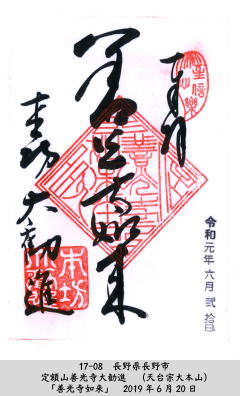 奉拝
善光寺如来
本坊大勧進
令和元年六月弐拾日
本坊
17-08 長野県長野市
定額山善光寺大勧進 (天台宗大本山)
「善光寺如来」 2019年6月20日